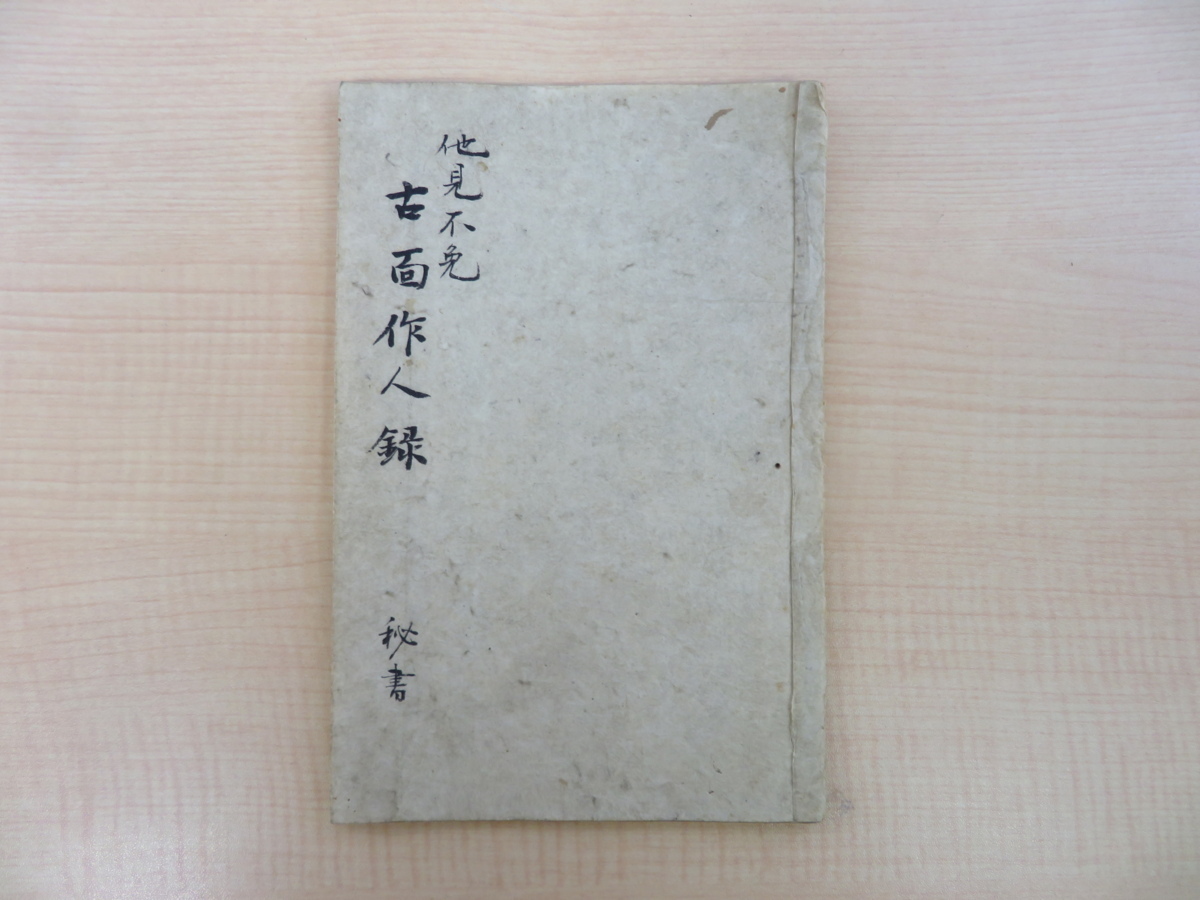 他見不免
古面作人録
秘書